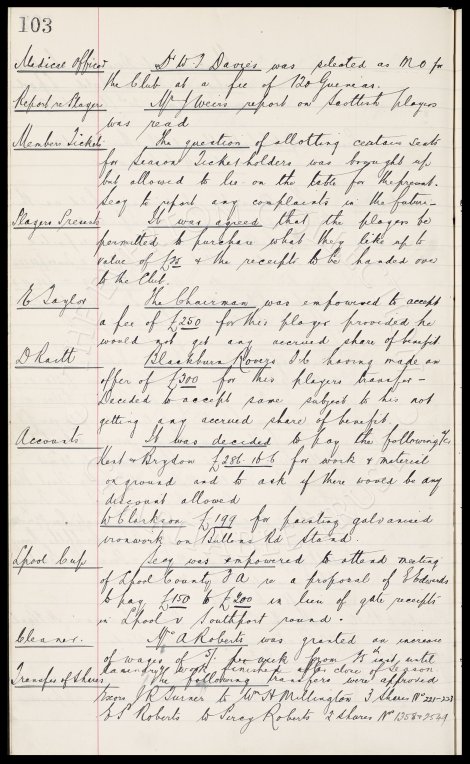 103
Medical Officer Dr W J Davies was selected as M O for
the Club at a fee of 120 Guineas.
Report re Player Mr J Weirs report on Scottish players
was read
Members Tickets The question of allotting certain seats
for Season Ticket holders was brought up
but allowed to lie on the table for the present.
Secy to report any complaints in the future –
Players Presents It was agreed that the players be
permitted to purchase what they like up to
value of £25 & the receipts to be handed over
to the Club.
E Taylor The Chairman was empowered to accept
a fee of £250 for this player provided he
would not get any accrued share of benefit
D Raitt Blackburn Rovers F.C having made an
offer of £300 for this players transfer –
Decided to accept same subject to his not
getting any accrued share of benefit.
Accounts It was decided to pay the following a/cs
& Brydon £286.16.6 for work & material
on ground and to ask if there would be any
discount allowed
W Clarkson £199 for painting galvanised
ironwork on Bullens Rd Stand.
Lpool Cup Secy was empowered to attend meeting
of Lpool County F A re a proposal of E Edwards
to pay £150 to £200 in lieu of gate receipts
in Lpool v Southport round.
Cleaner. Mrs A Roberts was granted an increase
of wages of 5/- per week from inst until
work finished after close of season
Transfer of Shares The following transfers were approved
J R Turner to Wm H Millington 3 Shares No 221-223
S Roberts to Percy Roberts 2 shares No 1358 & 2549